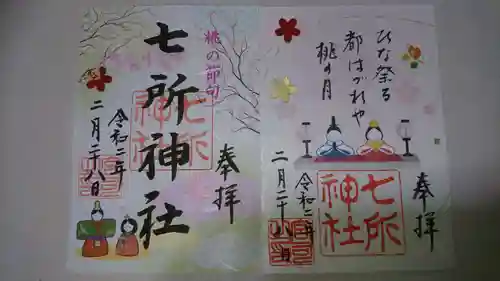 奉拝
桃の節句
七所神社
七所
神社
令和二年
二月二十八日
ひな祭る
都はづれや
桃の月
奉拝
七所
神社
令和二年
二月二十八日